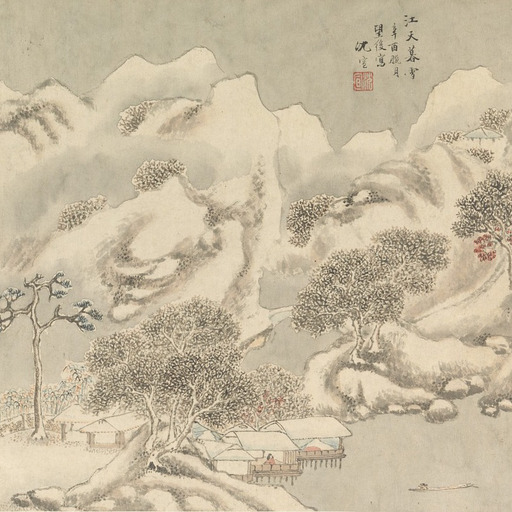 江天暮雪
辛酉臘月
望後寫
沈宣